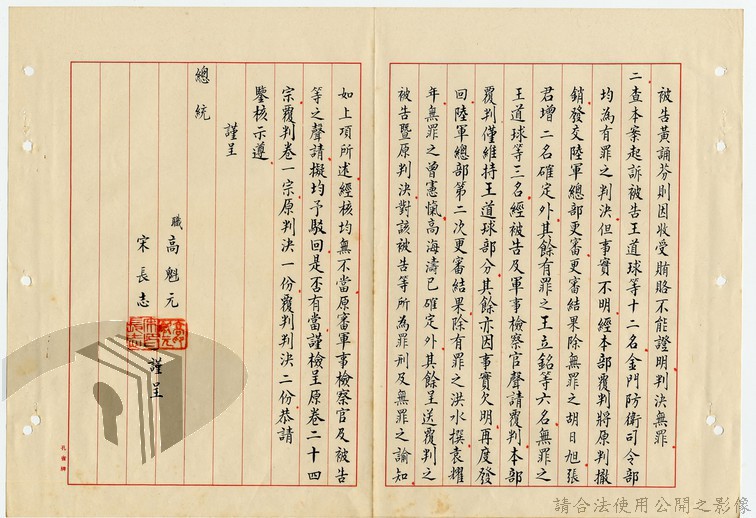 被告黃誦芬則因收受賄賂不能證明判決無罪
二查本案起訴被告王道球等十二名金門防衛司令部
均為有罪之判決但事實不明經本部覆判將原判撤
銷發交陸軍總部更審更審結果除無罪之胡日旭張
君增二名確定外其餘有罪之王立銘等六名無罪之
王道球等三名經被告及軍事檢察官聲請覆判本部
覆判僅維持王道球部分其餘亦因事實欠明再度發
回陸軍總部第二次更審結果除有罪之洪水撰袁耀
年無罪之曾憲愾高海濤已確定外其餘呈送覆判之
被告暨原判決對該被告等所為罪刑及無罪之諭知
如上項所述經核均無不當原審軍事檢察官及被告
等之聲請擬均予駁回是否有當謹檢呈原卷二十四
宗覆判卷一宗原判決一份覆判判決二份恭請
鑒核示遵
謹呈
總統
職高魁元
宋長志
謹呈
請合法使用公開之影像